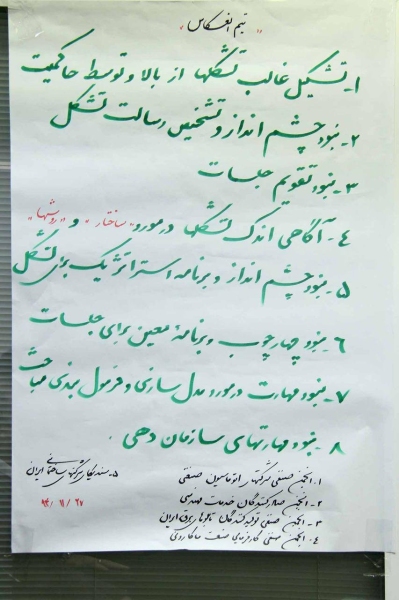 "تیم انعکاس"
۱- تشکیل غالب تشکلها از بالا و توسط حاکمیت
۲- نبود چشم انداز و تشخیص رسالت تشکل
۳- نبود تقویم جلسات
۴- آگاهی اندک تشکلها در مورد "ساختار" و "روشها"
۵- نبود چشم انداز و برنامه استراتژیک برای تشکل
۶- نبود چهارچوب و برنامهٔ معین برای جلسات
۷- نبود مهارت در مورد مدل سازی و فرمول بندی مباحث
۸- نبود مهارتهای سازمان دهی.
۱- انجمن صنفی شرکتهای اتوماسیون صنعتی
۲- انجمن صادرکنندگان خدمات مهندسی
۳- انجمن صنفی تولیدکنندگان تابلوهای برق ایران
۴- انجمن صنفی کارفرمایی صنعت ماکارونی
۵- سندیکای شرکتهای ساختمانی ایران
۹۴/۱۱/۲۷